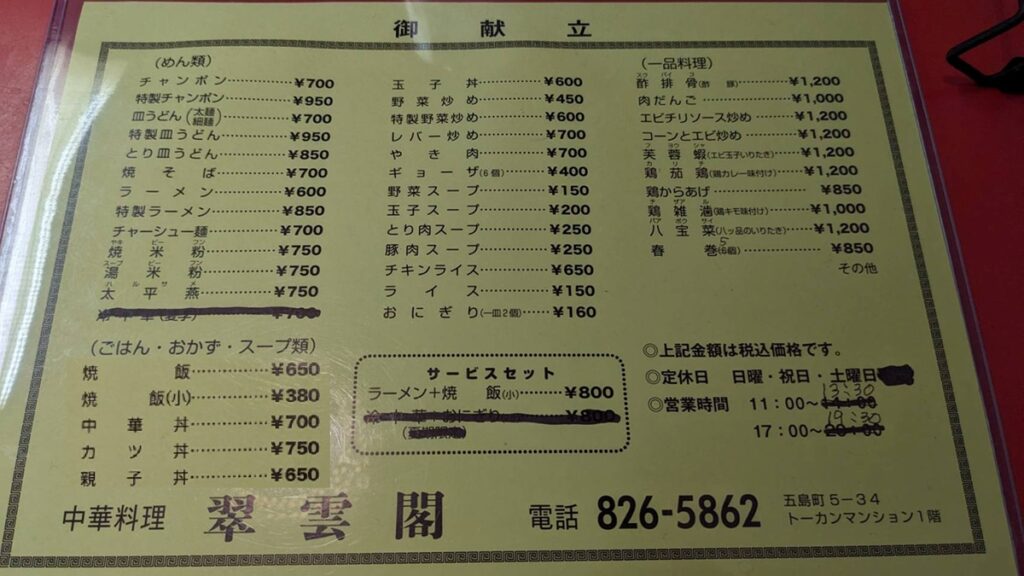 御献立
(めん類)
チャンポン ¥700
特製チャンポン ¥950
皿うどん(太麺 細麺) ¥700
特製皿うどん ¥950
とり皿うどん ¥850
焼そば ¥700
ラーメン ¥600
特製ラーメン ¥850
チャーシュー麺 ¥700
ヤキ ビー フン
焼米粉 ¥750
スープ ビー フン
湯米粉 ¥750
ハルサメ
太平燕 ¥750
¥700
(ごはん・おかず・スープ類)
焼飯 ¥650
焼飯(小) ¥380
中華丼 ¥700
カツ丼 ¥750
親子丼 ¥650
玉子丼 ¥600
野菜炒め ¥450
特製野菜炒め ¥600
レバー炒め ¥700
やき肉 ¥700
ギョーザ(6個) ¥400
野菜スープ ¥150
玉子スープ ¥200
とり肉スープ ¥250
豚肉スープ ¥250
チキンライス ¥650
ライス ¥150
おにぎり(一皿2個) ¥160
サービスセット
ラーメン+焼飯(小) ¥800
冷中華+おにぎり ¥800
(夏期限定)
(一品料理)
スウ パイ コ
酢排骨(酢豚) ¥1,200
肉だんご ¥1,000
エビチリソース炒め ¥1,200
コーンとエビ炒め ¥1,200
フ ヨウ シャ
芙蓉蝦(エビ玉子いりたき) ¥1,200
カ リ チ
鶏茄鶏(鶏カレー味付け) ¥1,200
鶏からあげ ¥850
チ ザア ル
鶏雑滷(鶏キモ味付け) ¥1,000
パア ポウ サイ
八宝菜(八ッ品のいりたき) ¥1,200
5
春巻(6個) ¥850
その他
◎上記金額は税込価格です。
◎定休日 日曜・祝日・土曜日
13:30
◎営業時間 11:00〜14:00
19:30
17:00〜20:00
中華料理 翠雲閣 電話 826-5862
五島町5-34
トーカンマンション1階